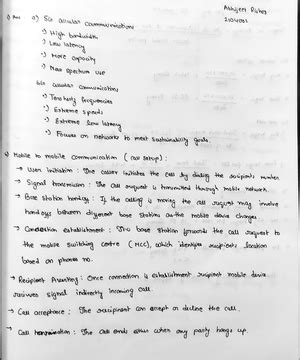 Abhijeet
1) Ans a) 5G cellular communication
→ High bandwidth
→ Low latency
→ More capacity
→ New spectrum use
6G cellular communication
→ Terahertz frequencies
→ Extreme speeds
→ Extreme low latency
→ Focuses on networks to meet sustainability goals
Mobile to mobile communication (call setup):
→ User Initiation: The caller initiates the call by dialing the recipients number.
→ Signal transmission: The call request is transmitted through mobile network.
→ Base station handoff: If the calling is moving the call request may involve
handoffs between different base stations as the mobile device changes.
→ Connection establishment: The base station forwards the call request to
the mobile switching centre (MCC), which identifies recipients location
based on phone no.
→ Recipient Alerting: Once connection is establishment recipient mobile device
receives signal indirectly incoming call.
→ Call acceptance: The recipient can accept or decline the call.
→ Call termination: The call ends either when any party hangs up.